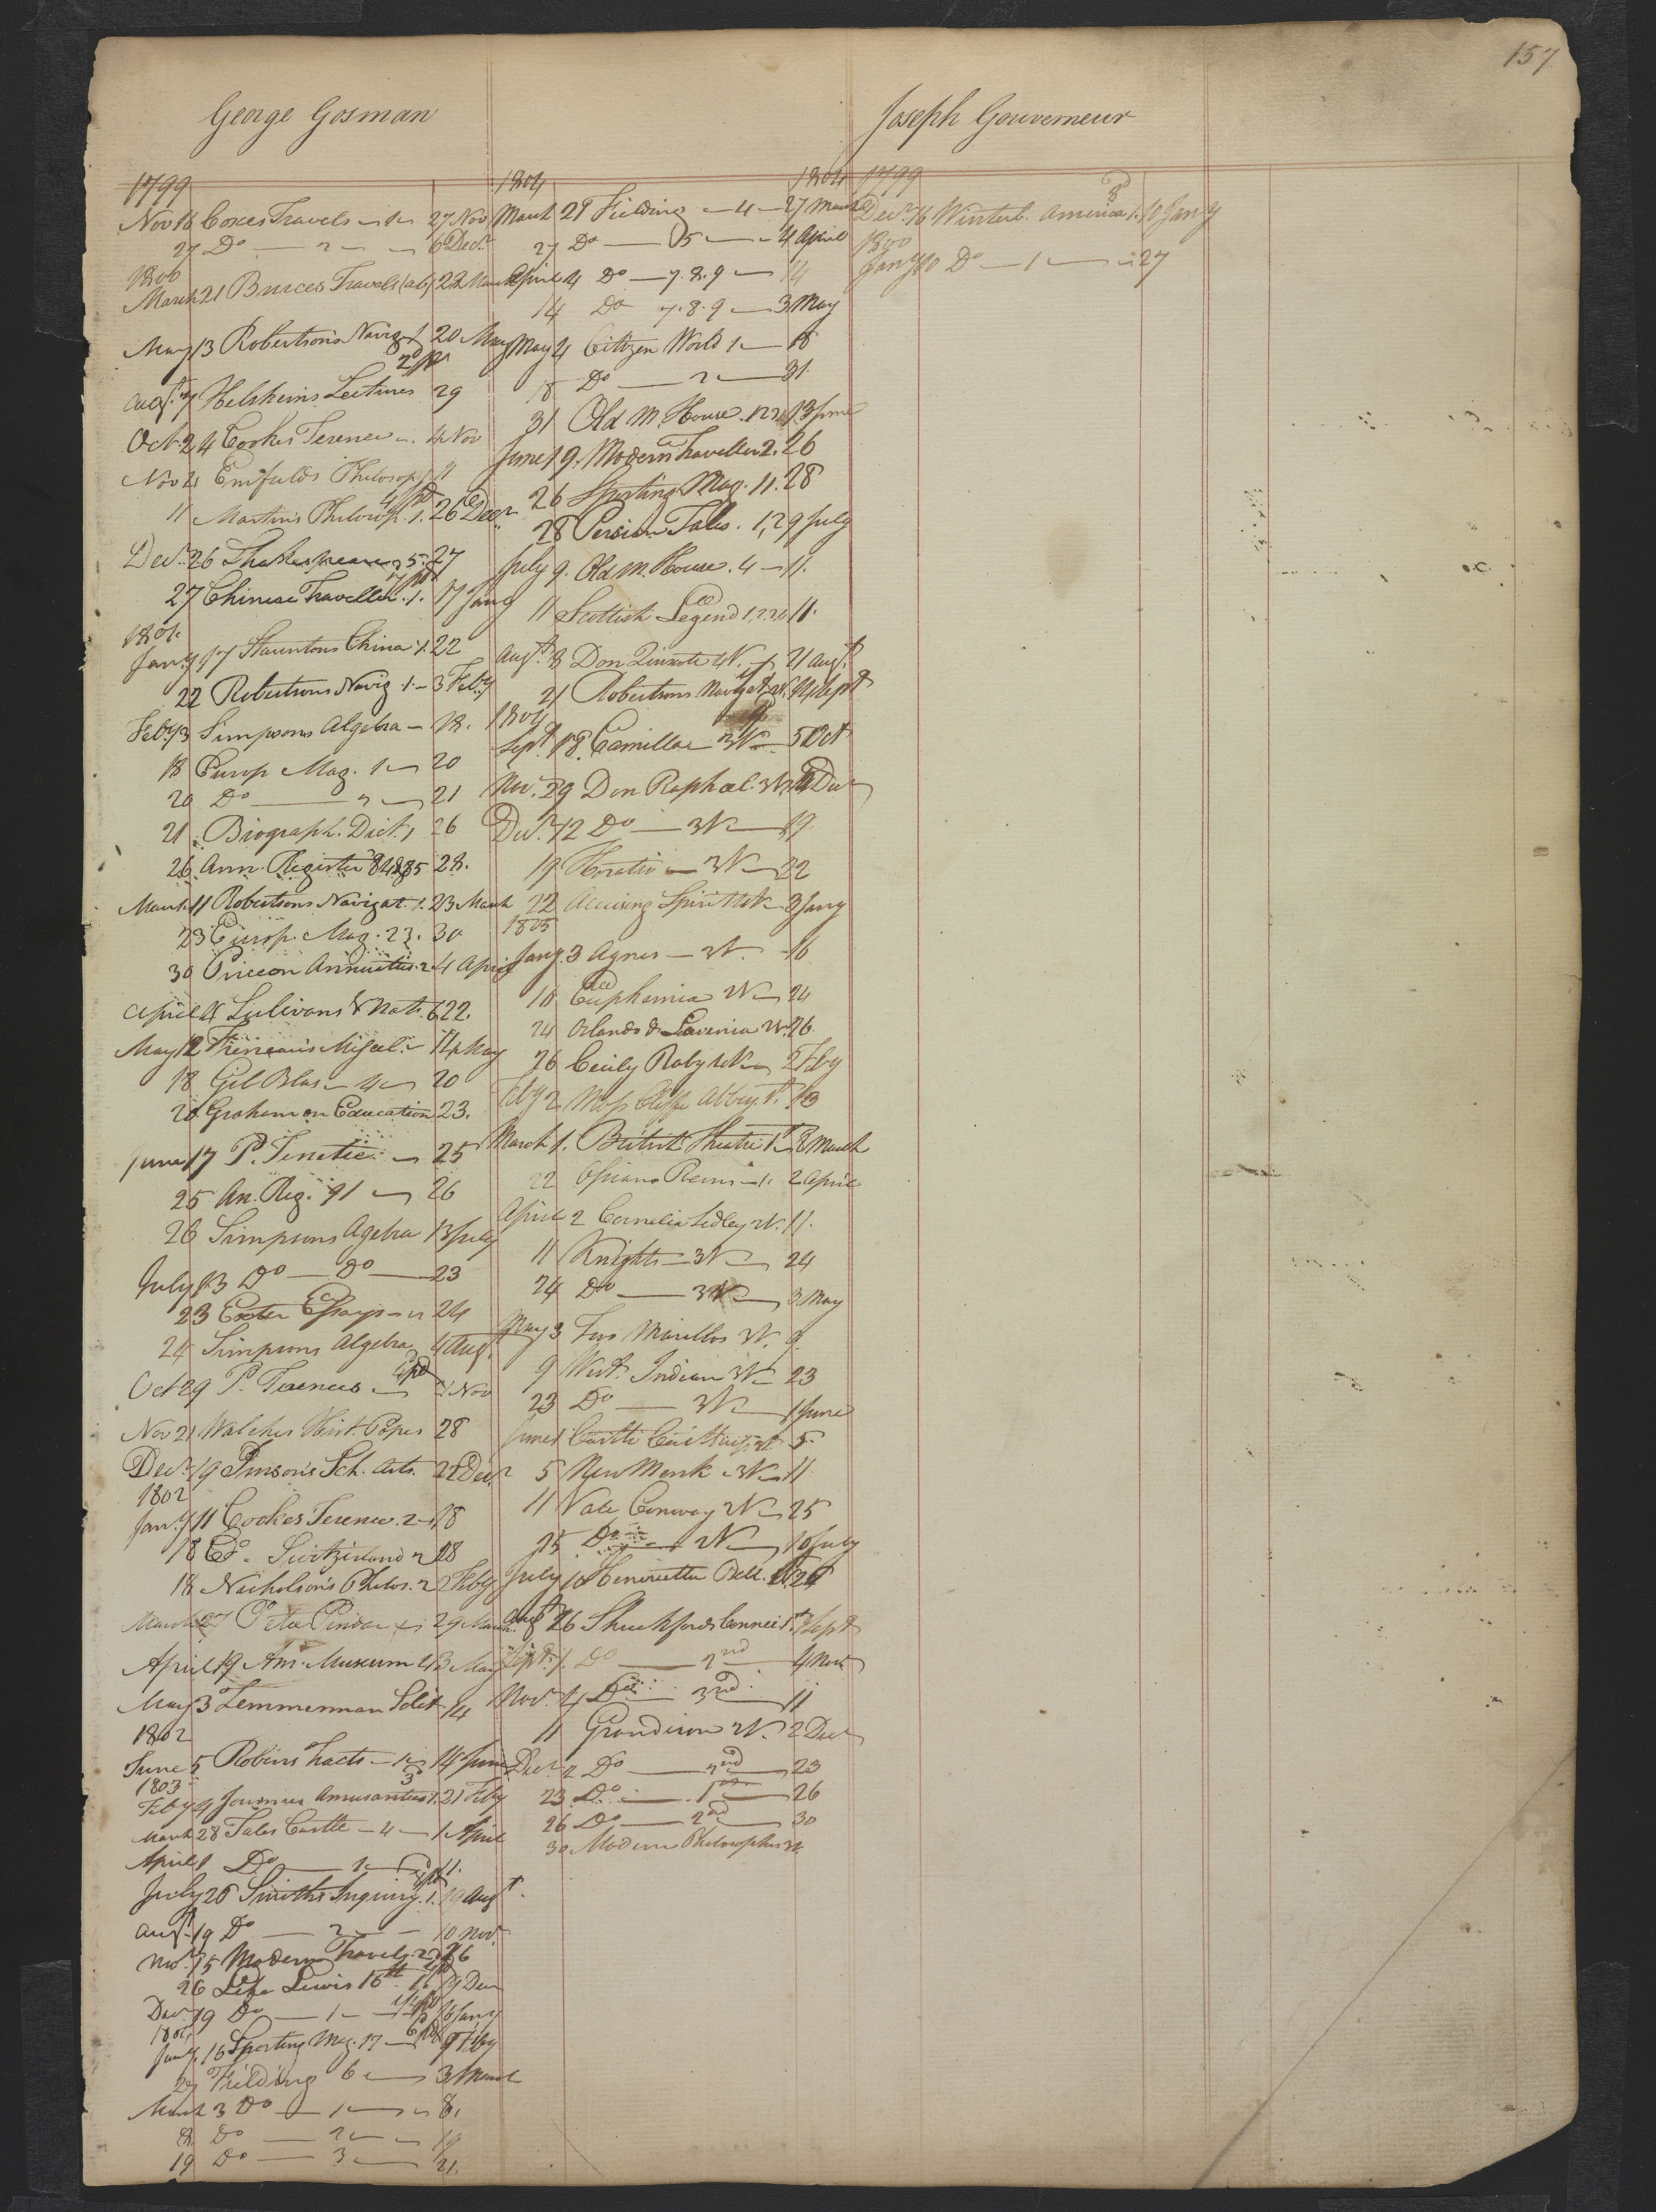 157
George Gosman
1799
Nov 16 Coxes Travels — 1 — 27 Nov
27 Do — 2 — 6 Decr
1800
March 21 Bruces Travels (ab) 22 March
May 13 Robertsons Navig. 1 20 May
Augt 7 Helshams Lectures 29
Oct. 24 Cookes Terence — 4 Nov
Nov 4 Enfields Philosop. 11
11 Martins Philosop. 1. 26 Decr
Decr 26 Shakespeare 5. 27
27 Chinese Traveller. 1. 17 Jany
1801.
Jany 17 Stauntons China 1. 22
22 Robertsons Navig. 1 — 3 Feby
Feby 13 Simpsons Algebra — 18.
18 Europ Mag. 1 — 20
20 Do — 21
21 Biograph. Dict. 1 26
26 Ann. Register 84 & 85 28.
March 11 Robertsons Navigat. 1. 23 March
23 Europ. Mag. 23. 30
30 Price on Annuities. 2. 4 April
April 4 Sulivans V. Nat. 6 22.
May 12 14 May
18 Gil Blas — 4 — 20
20 Graham on Education 23.
June 17 P. Terence — 25
25 An. Reg. 91 — 26
26 Simpsons Agebra 13 July
July 13 Do — Do — 23
23 Exeter Essays — 24
24 Simpsons Algebra 4 Augt
Oct 29 P. Terences — Nov
Nov 21 Walches Hist. Popes 28
Decr 19 Imisons Sch. Arts. 22 Decr
1802
Jany 11 Cookes Terence. 2 — 18
18 Switzerland 2 28
18 Nicholsons Philos. 2 2 Feby
March Peter Pindar 29 March
April 19 Am. Museum 4 3 May
May 3 Zemmerman Solit. 14
1802
June 5 Robins Tracts — 1 — 14 June
1803
Feby 9 Journies Amusantes 1. 21 Feby
March 28 Tales Castle — 4 — 1. April
April 1 Do — 1 — 11.
July 26 Smiths Inquiry. 1. 19 Augt
Augt 19 Do — 2 — 10 Nov.
Nov. 15 Modern Travels 2 26
26 Life Lewis 16th 1. 19 Decr
Decr 19 Do — 1 — 16 Jany
1804
Jany 16 Sporting Mag. 17 — 9 Feby
29 Fielding 6 — 3 March
March 3 Do — 1 — 8.
8 Do — 2 — 19
19 Do — 3 — 21.
1804 1804
March 21 Fielding — 4 — 27 March
27 Do — 5 — 4 April
April 4 Do — 7. 8. 9 — 14
14 Do 7. 8. 9 — 3 May
May 4 Citizen World 1 — 18
18 Do — 2 — 31
31 Old M. House. 1 2 3 13 June
June 19. Modern Traveller 2. 26
26 Sporting Mag. 11. 28
28 Persian Tales. 1, 2 9 July
July 9. Old M. House. 4 — 11.
11 Scottish Legend 1, 2 11.
Augt 8 Don Quixote 4 V. 21 Augt
21 Robertsons Navigat. Sept
1804
Sept 18. Camilla — 3 V — 5 Oct
Nov. 29 Don Raphael. 3 V Decr
Decr 12 Do — 3 V — 19
19 Horatio — 3 V — 22
22 Accusing Spirit 3 Jany
1805
Jany. 3 Agnes — 2 V. — 16
16 Euphemia 2 V — 24
24 Orlando & Lavinia 2 V. 26.
26 Cecily Raby 2 Feby
Feby 2 Moss Cliffe Abbey. 13
March 1. British Theatre 1st 8 March
22 Ossians Poems — 1. 2 April
April 2 Cornelia Sedley 2 V. 11.
11 Knights — 3 V — 24
24 Do — 3 V — 3 May
May 3 Two Marillos 3 V. 9.
9 West Indian 3 V — 23
23 Do — 3 V — 1 June
June 1 Castle 5.
5 New Monk — 3 V — 11
11 Vale Conway 2 V — 25
25 Do — 2 V — 10 July
July 10 Henrietta Bell. 26
Augt 26 Shuckfords Connec 1st Sept
Sept. 1. Do — 2nd 4 Nov
Nov. 4 Do — 3rd. 11
11 Grandison 2 V. 2 Decr
Decr 2 Do — 2nd — 23
23 Do — 1st — 26
26 Do — 2nd — 30
30 Modern Philosophers
Joseph Gouverneur
1799
Decr 16 Winterb. America 1. 10 Jany
1800
Jany 10 Do — 1 — 27